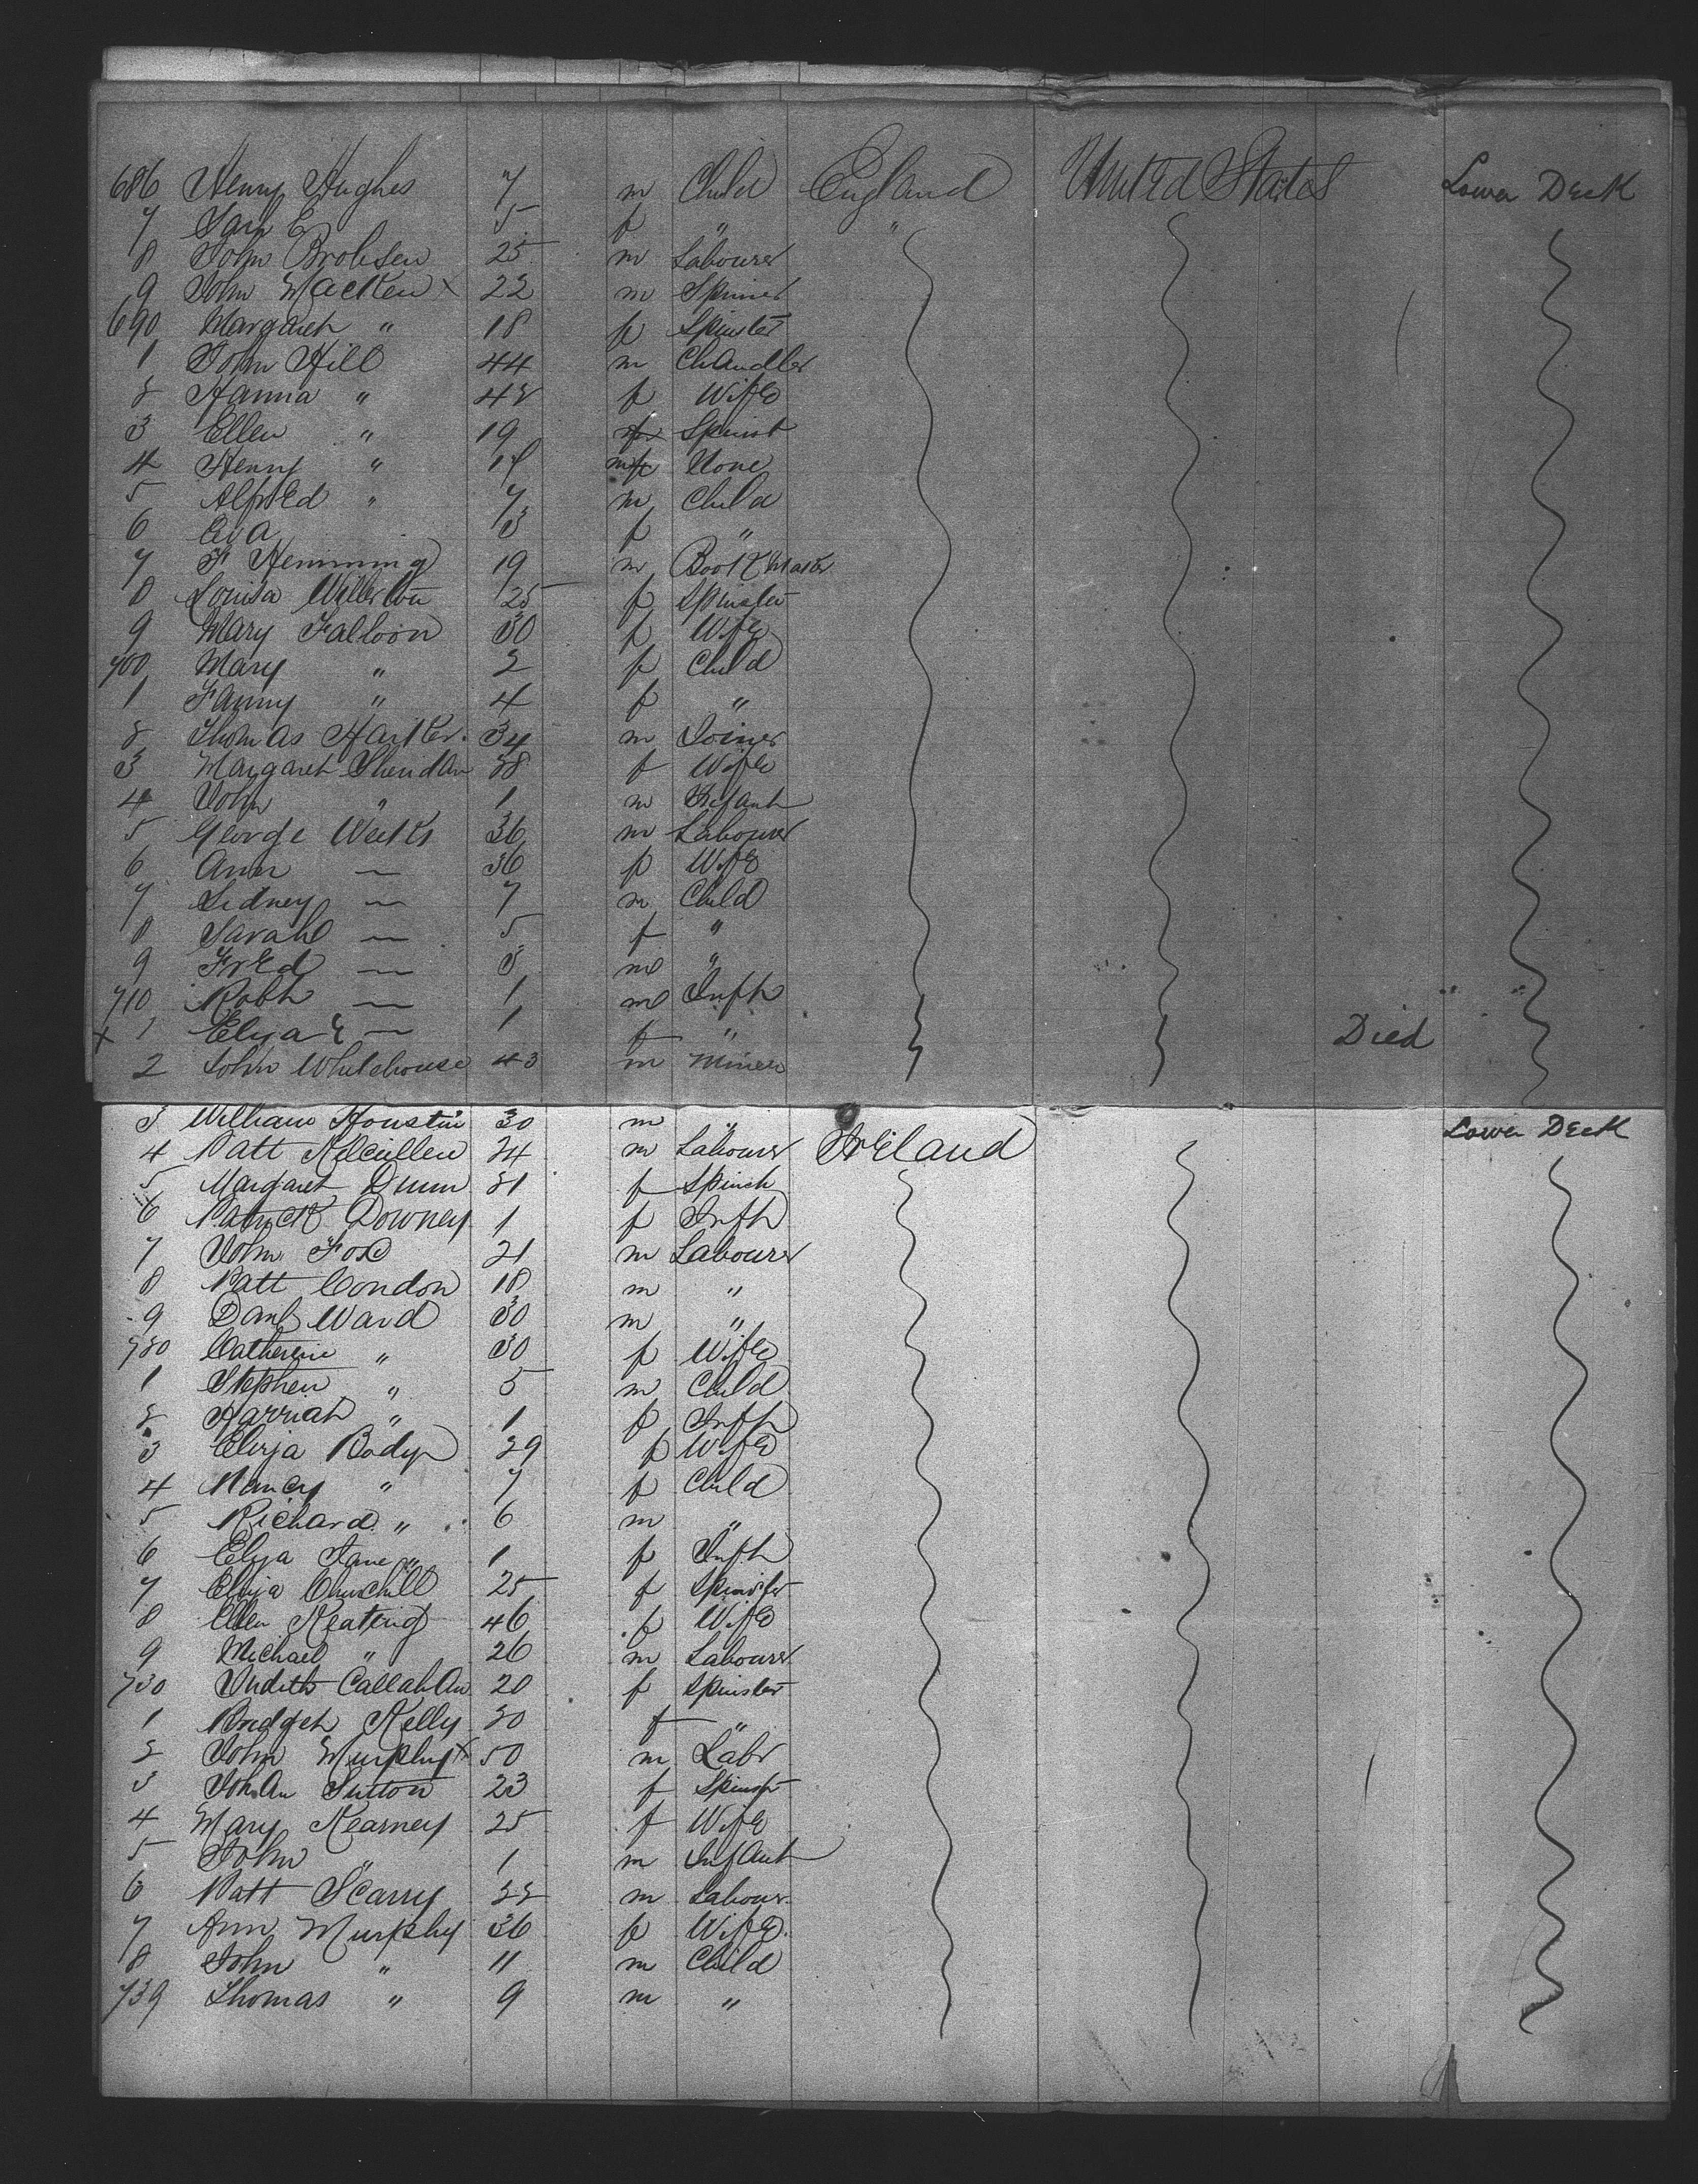 686 Henry Hughes 7 m Child England United States Lower Deck
7 Sarh E 5 f " "
8 John Brobsen 25 m Labourer
9 John Macken x 22 m Spinner
690 Margaret " 18 f Spinster
1 John Hill 44 m Chandler
2 Hanna " 42 f Wife
3 Ellen " 19 f Spinst
4 Henry " m None
5 Alfred " 7 m Child
6 Eva 3 f "
7 F Hemming 19 m Boot Maker
8 Louisa Willerton 25 f Spinster
9 Mary Falloon 30 f Wife
700 Mary " 2 f Child
1 Fanny " 4 f "
2 Thomas Harker 34 m Joiner
3 Margaret Sheridan 28 f Wife
4 John " 1 m Infant
5 George Weeks 36 m Labourer
6 Ann — 36 f Wife
7 Sidney — 7 m Child
8 Sarah — 5 f "
9 Fred — 3 m "
710 Robt — 1 m Inft
x 1 Eliza E — 1 f " Died
2 John Whitehouse 43 m Miner
3 William Houstin 30 m " Lower Deck
4 Patt Kilcullen 24 m Labourer Ireland
5 Margaret Dunn 21 f Spinst
6 Patrick Downey 1 f Inft
7 John Fox 21 m Labourer
8 Patt Condon 18 m "
9 Danl Ward 30 m "
720 Catherine " 30 f Wife
1 Stephen " 5 m Child
2 Harriat " 1 f Inft
3 Eliza Body 29 f Wife
4 Nancy " 7 f Child
5 Richard " 6 m "
6 Eliza Jane " 1 f Inft
7 Eliza Churchill 25 f Spinster
8 Ellen Keating 46 f Wife
9 Michael " 26 m Labourer
730 Judith Callahan 20 f Spinster
1 Bridget Kelly 20 f "
2 John Murphy x 50 m Labr
3 Johan Sutton 23 f Spinst
4 Mary Kearney 25 f Wife
5 John " 1 m Infant
6 Patt Scarry 22 m Labour
7 Ann Murphy 36 f Wife
8 John " 11 m Child
739 Thomas " 9 m "